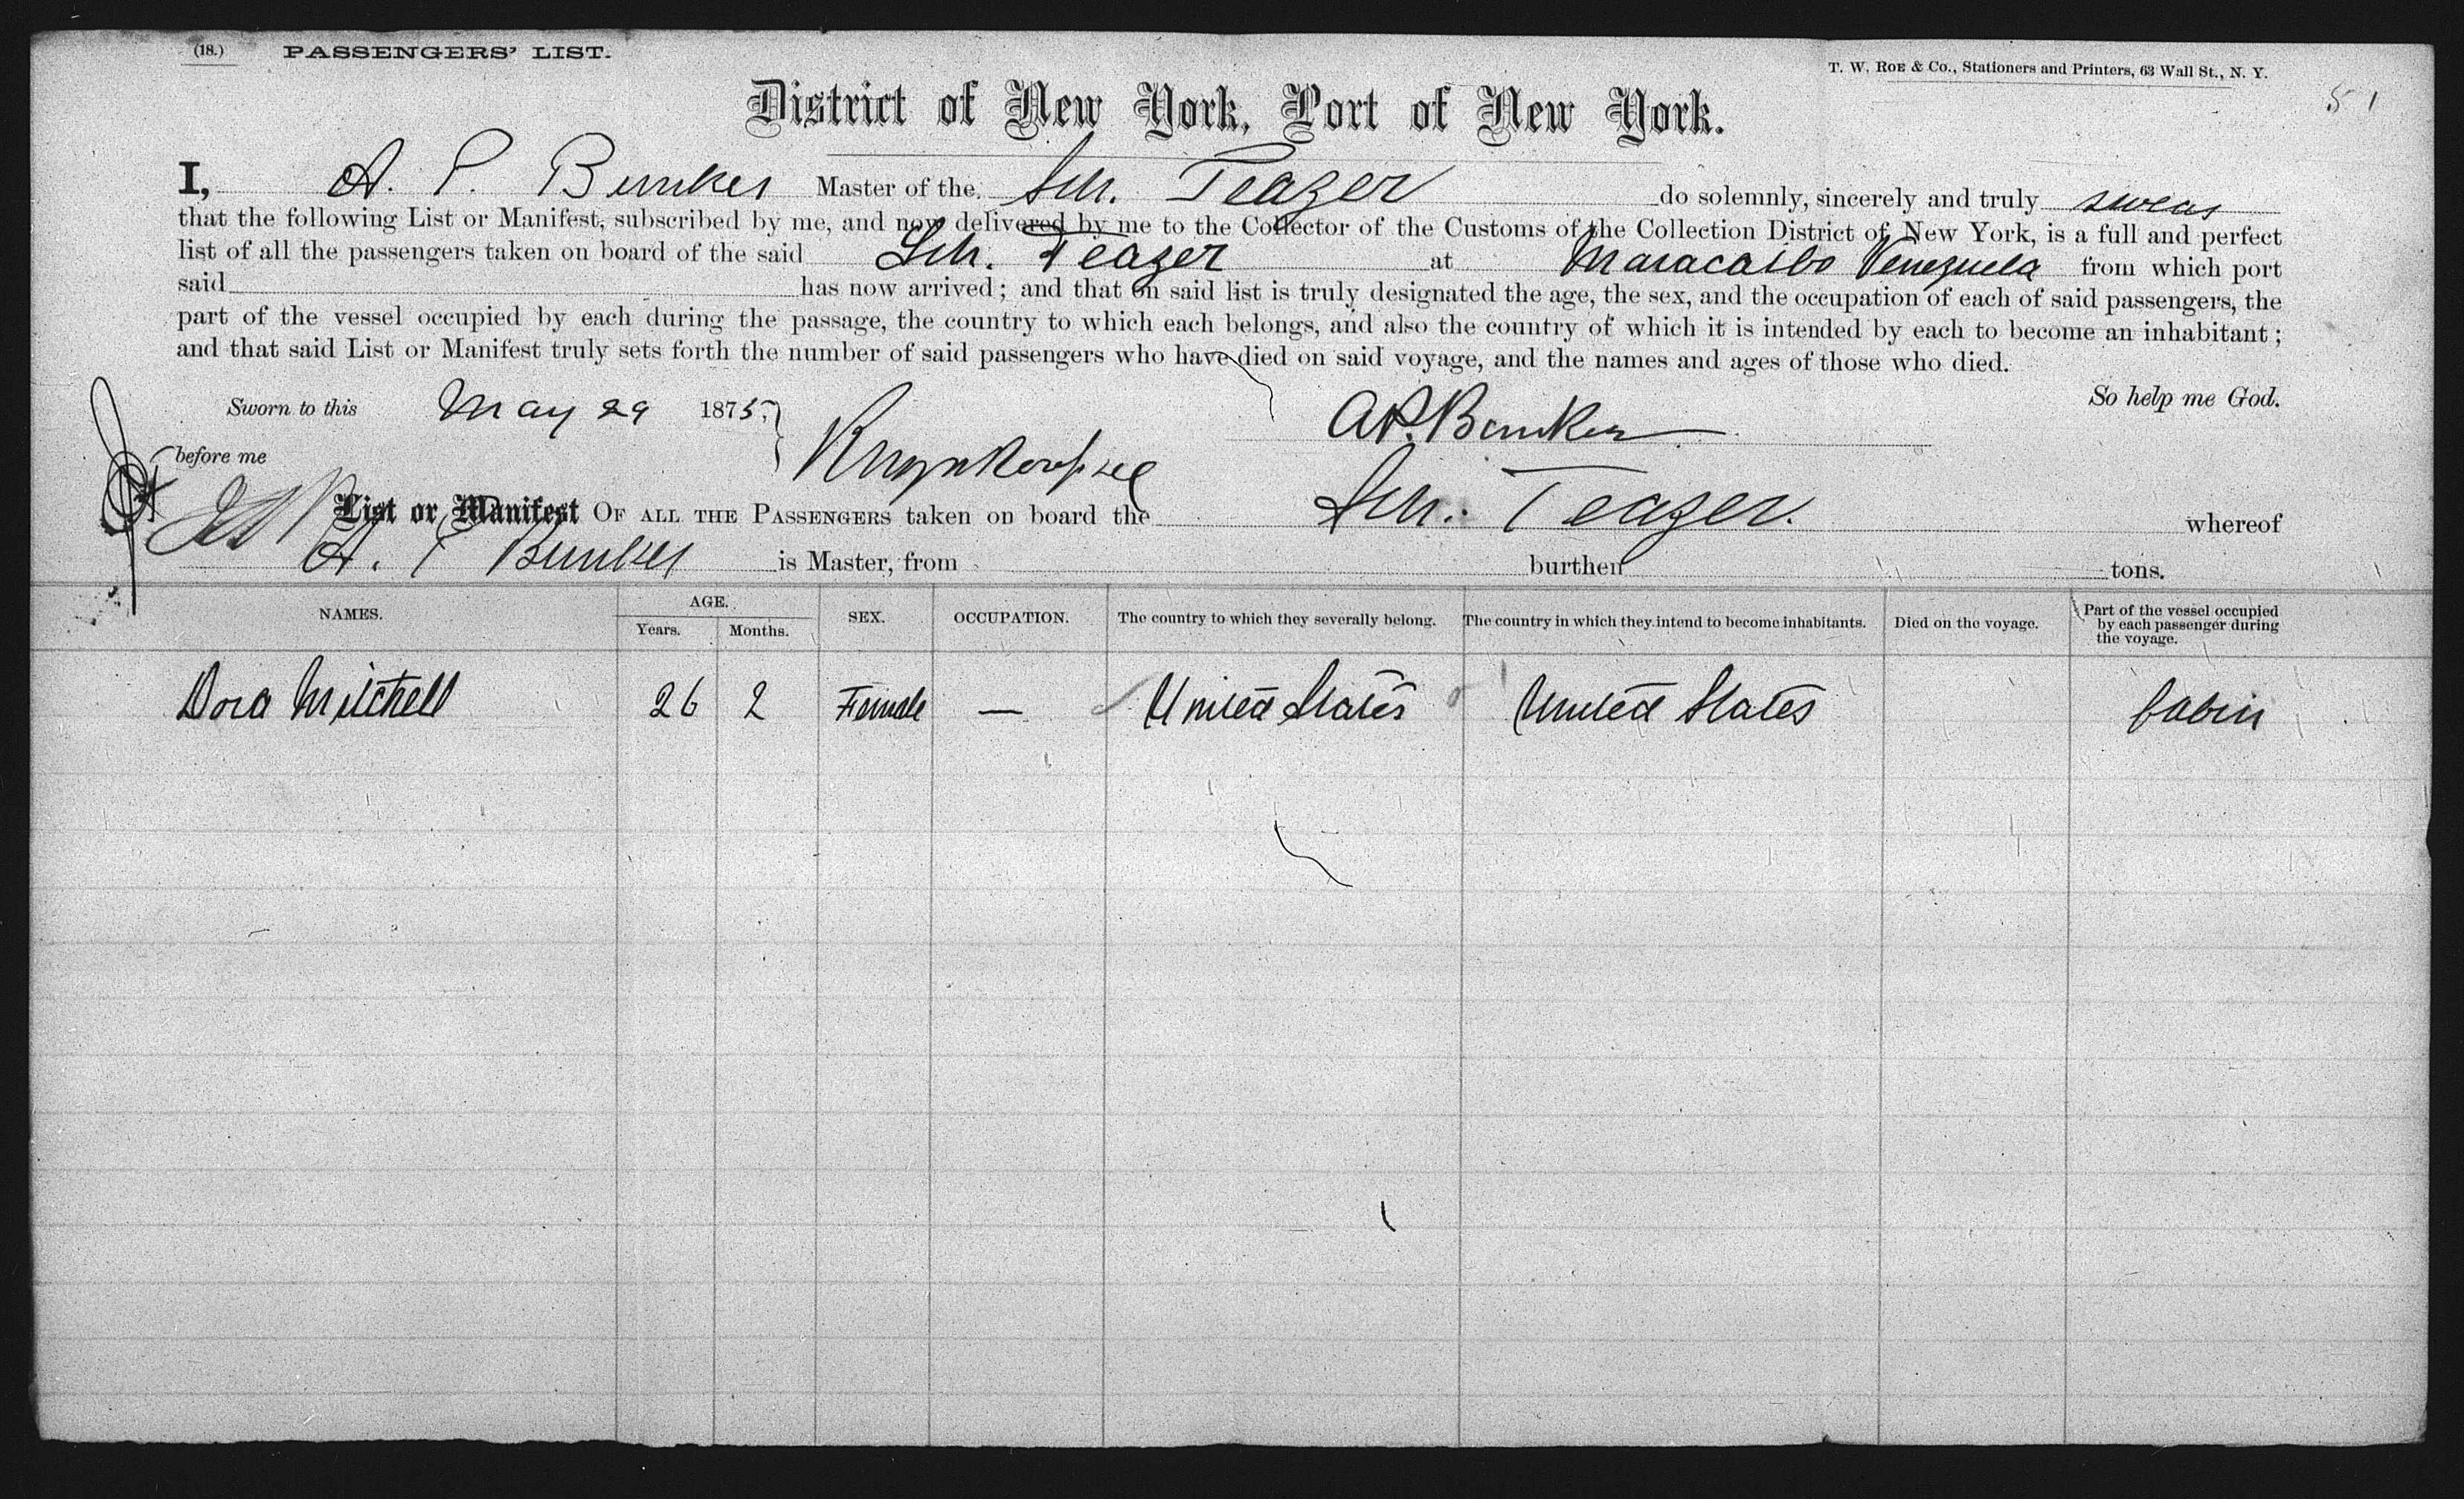 (18.) PASSENGERS' LIST.
T. W. ROE & Co., Stationers and Printers, 63 Wall St., N. Y.
51
District of New York, Port of New York.
I, A. P. Bunker Master of the Sch. Teazer do solemnly, sincerely and truly swear
that the following List or Manifest, subscribed by me, and now delivered by me to the Collector of the Customs of the Collection District of New York, is a full and perfect
list of all the passengers taken on board of the said Sch. Teazer at Maracaibo Venezuela from which port
said has now arrived; and that on said list is truly designated the age, the sex, and the occupation of each of said passengers, the
part of the vessel occupied by each during the passage, the country to which each belongs, and also the country of which it is intended by each to become an inhabitant;
and that said List or Manifest truly sets forth the number of said passengers who have died on said voyage, and the names and ages of those who died.
So help me God.
Sworn to this May 29 1875.
A.P. Bunker
before me
List or Manifest OF ALL THE PASSENGERS taken on board the Sch. Teazer. whereof
A. P Bunker is Master, from burthen tons.
NAMES. AGE. Years. Months. SEX. OCCUPATION. The country to which they severally belong. The country in which they intend to become inhabitants. Died on the voyage. Part of the vessel occupied by each passenger during the voyage.
Dora Mitchell 26 2 Female — United States United States Cabin